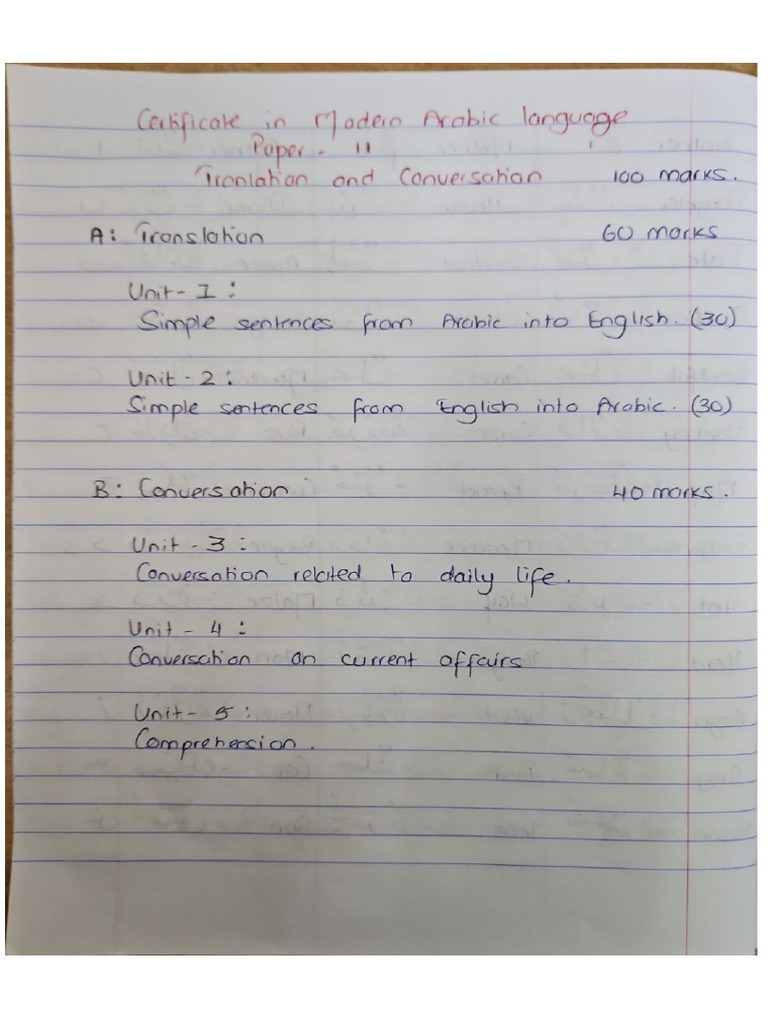 Certificate in Modern Arabic language
Paper - II
Tranlation and Conversation 100 marks.
A: Translation 60 marks
Unit - I :
Simple sentences from Arabic into English. (30)
Unit - 2 :
Simple sentences from English into Arabic. (30)
B: Conversation 40 marks.
Unit - 3 :
Conversation related to daily life.
Unit - 4 :
Conversation on current affairs
Unit - 5 :
Comprehension.